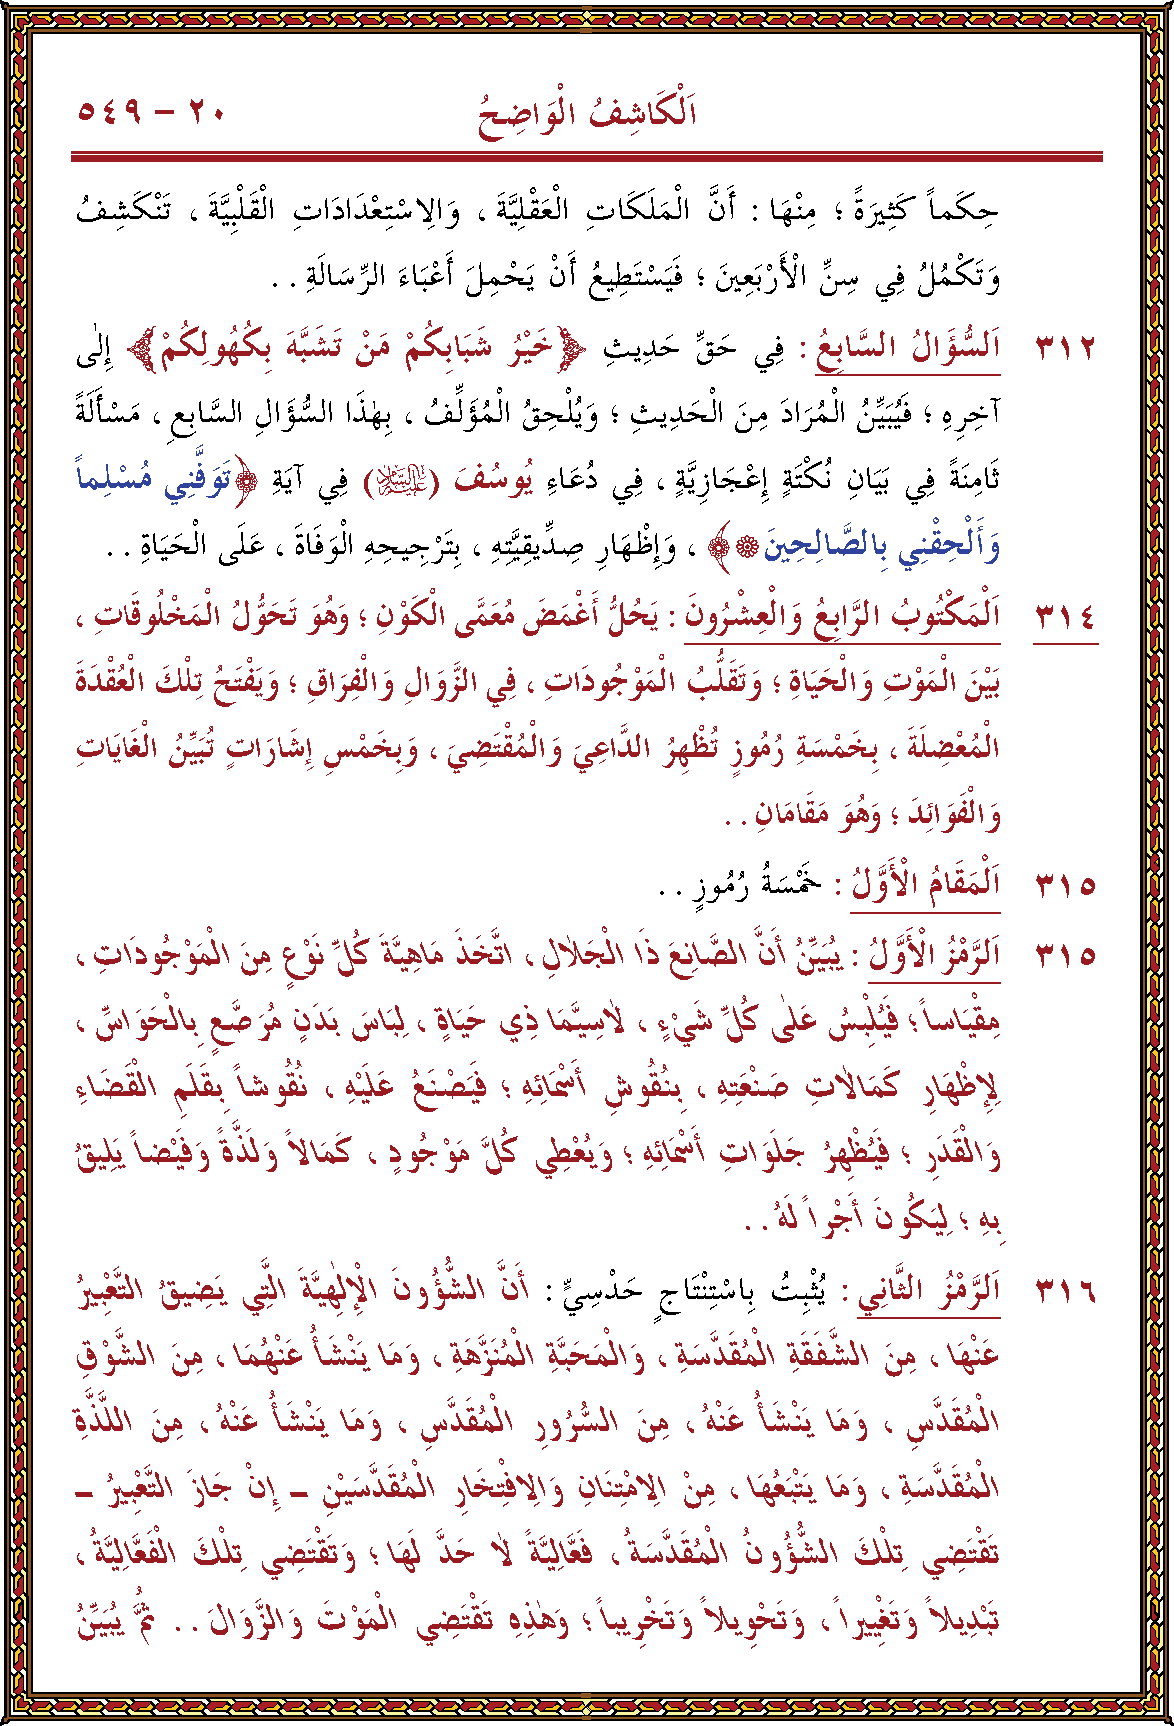 اَلْكَاشِفُ الْوَاضِحُ ٢٠ – ٥٤٩
حِكَماً كَثِيرَةً ؛ مِنْهَا : أَنَّ الْمَلَكَاتِ الْعَقْلِيَّةَ ، وَالِاسْتِعْدَادَاتِ الْقَلْبِيَّةَ ، تَنْكَشِفُ
وَتَكْمُلُ فِي سِنِّ الْأَرْبَعِينَ ؛ فَيَسْتَطِيعُ أَنْ يَحْمِلَ أَعْبَاءَ الرِّسَالَةِ . .
٣١٢ اَلسُّؤَالُ السَّابِعُ : فِي حَقِّ حَدِيثِ ﴿خَيْرُ شَبَابِكُمْ مَنْ تَشَبَّهَ بِكُهُولِكُمْ﴾ إِلٰى
آخِرِهِ ؛ فَيُبَيِّنُ الْمُرَادَ مِنَ الْحَدِيثِ ؛ وَيُلْحِقُ الْمُؤَلِّفُ ، بِهٰذَا السُّؤَالِ السَّابِعِ ، مَسْأَلَةً
ثَامِنَةً فِي بَيَانِ نُكْتَةٍ إِعْجَازِيَّةٍ ، فِي دُعَاءِ يُوسُفَ (عَلَيْهِ السَّلَامُ) فِي آيَةِ ﴿تَوَفَّنِي مُسْلِماً
وَأَلْحِقْنِي بِالصَّالِحِينَ۞﴾ ، وَإِظْهَارِ صِدِّيقِيَّتِهِ ، بِتَرْجِيحِهِ الْوَفَاةَ ، عَلَى الْحَيَاةِ . .
٣١٤ اَلْمَكْتُوبُ الرَّابِعُ وَالْعِشْرُونَ : يَحُلُّ أَغْمَضَ مُعَمَّى الْكَوْنِ ؛ وَهُوَ تَحَوُّلُ الْمَخْلُوقَاتِ ،
بَيْنَ الْمَوْتِ وَالْحَيَاةِ ؛ وَتَقَلُّبُ الْمَوْجُودَاتِ ، فِي الزَّوَالِ وَالْفِرَاقِ ؛ وَيَفْتَحُ تِلْكَ الْعُقْدَةَ
الْمُعْضِلَةَ ، بِخَمْسَةِ رُمُوزٍ تُظْهِرُ الدَّاعِيَ وَالْمُقْتَضِيَ ، وَبِخَمْسِ إِشَارَاتٍ تُبَيِّنُ الْغَايَاتِ
وَالْفَوَائِدَ ؛ وَهُوَ مَقَامَانِ . .
٣١٥ اَلْمَقَامُ الْأَوَّلُ : خَمْسَةُ رُمُوزٍ . .
٣١٥ اَلرَّمْزُ الْأَوَّلُ : يُبَيِّنُ أَنَّ الصَّانِعَ ذَا الْجَلَالِ ، اتَّخَذَ مَاهِيَّةَ كُلِّ نَوْعٍ مِنَ الْمَوْجُودَاتِ ،
مِقْيَاساً ؛ فَيُلْبِسُ عَلٰى كُلِّ شَيْءٍ ، لَاسِيَّمَا ذِي حَيَاةٍ ، لِبَاسَ بَدَنٍ مُرَصَّعٍ بِالْحَوَاسِّ ،
لِإِظْهَارِ كَمَالَاتِ صَنْعَتِهِ ، بِنُقُوشِ أَسْمَائِهِ ؛ فَيَصْنَعُ عَلَيْهِ ، نُقُوشاً بِقَلَمِ الْقَضَاءِ
وَالْقَدَرِ ؛ فَيُظْهِرُ جَلَوَاتِ أَسْمَائِهِ ؛ وَيُعْطِي كُلَّ مَوْجُودٍ ، كَمَالاً وَلَذَّةً وَفَيْضاً يَلِيقُ
بِهِ ؛ لِيَكُونَ أَجْراً لَهُ . .
٣١٦ اَلرَّمْزُ الثَّانِي : يُثْبِتُ بِاسْتِنْتَاجٍ حَدْسِيٍّ : أَنَّ الشُّؤُونَ الْإِلٰهِيَّةَ الَّتِي يَضِيقُ التَّعْبِيرُ
عَنْهَا ، مِنَ الشَّفَقَةِ الْمُقَدَّسَةِ ، وَالْمَحَبَّةِ الْمُنَزَّهَةِ ، وَمَا يَنْشَأُ عَنْهُمَا ، مِنَ الشَّوْقِ
الْمُقَدَّسِ ، وَمَا يَنْشَأُ عَنْهُ ، مِنَ السُّرُورِ الْمُقَدَّسِ ، وَمَا يَنْشَأُ عَنْهُ ، مِنَ اللَّذَّةِ
الْمُقَدَّسَةِ ، وَمَا يَتْبَعُهَا ، مِنْ الِامْتِنَانِ وَالِافْتِخَارِ الْمُقَدَّسَيْنِ – إِنْ جَازَ التَّعْبِيرُ –
تَقْتَضِي تِلْكَ الشُّؤُونُ الْمُقَدَّسَةُ ، فَعَّالِيَّةً لَا حَدَّ لَهَا ؛ وَتَقْتَضِي تِلْكَ الْفَعَّالِيَّةُ ،
تَبْدِيلاً وَتَغْيِيراً ، وَتَحْوِيلاً وَتَخْرِيباً ؛ وَهٰذِهِ تَقْتَضِي الْمَوْتَ وَالزَّوَالَ . . ثُمَّ يُبَيِّنُ